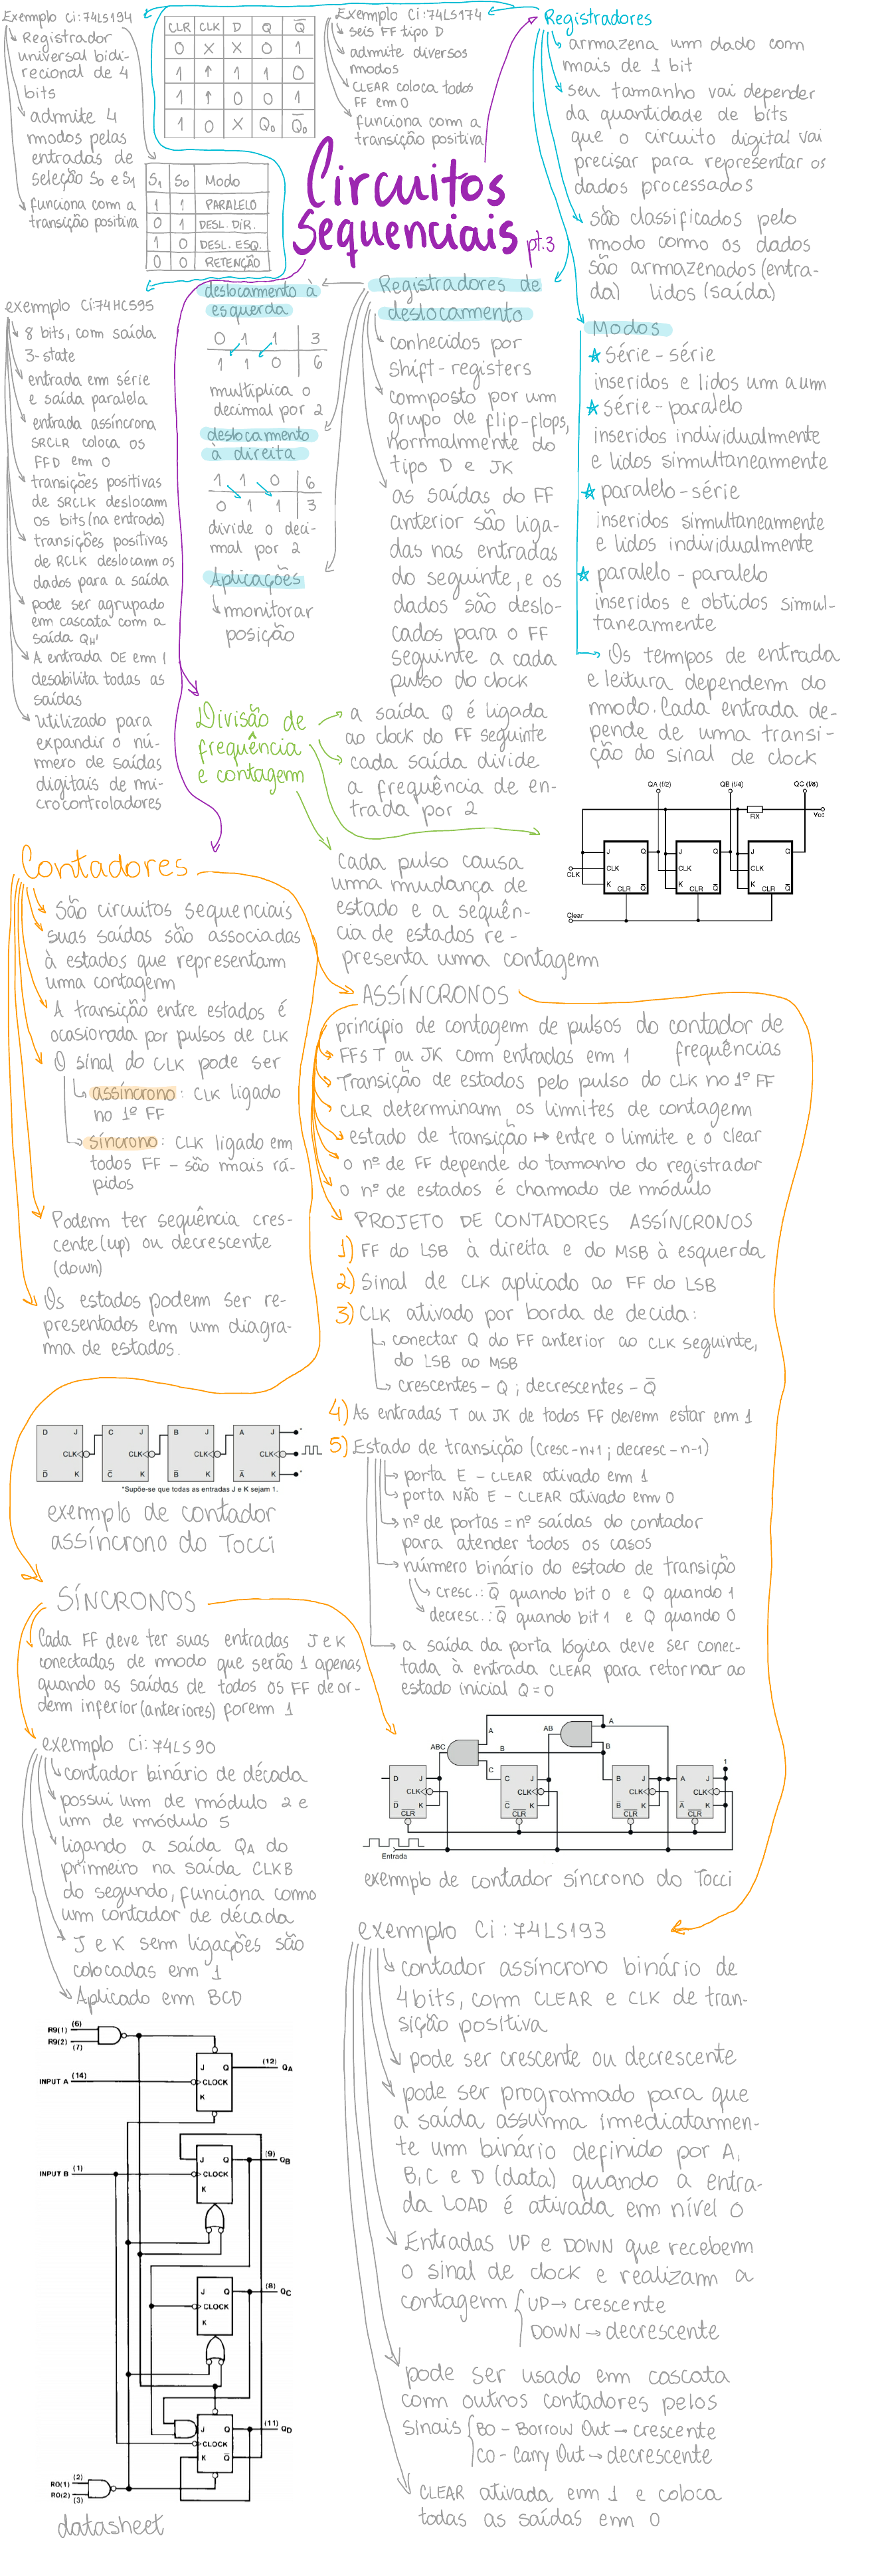 Exemplo Ci:74LS194
Registrador
universal bidi-
recional de 4
bits
admite 4
modos pelas
entradas de
seleção S0 e S1
funciona com a
transição positiva
CLR CLK D Q Q̅
0 X X 0 1
1 ↑ 1 1 0
1 ↑ 0 0 1
1 0 X Q₀ Q̅₀
Exemplo Ci:74LS174
seis FF tipo D
admite diversos
modos
CLEAR coloca todos
FF em 0
funciona com a
transição positiva
S₁ S₀ Modo
1 1 PARALELO
0 1 DESL. DIR.
1 0 DESL. ESQ.
0 0 RETENÇÃO
Circuitos
Sequenciais pt.3
Registradores
armazena um dado com
mais de 1 bit
seu tamanho vai depender
da quantidade de bits
que o circuito digital vai
precisar para representar os
dados processados
são classificados pelo
modo como os dados
são armazenados (entra-
da) lidos (saída)
Modos
★ série - série
inseridos e lidos um a um
★ série - paralelo
inseridos individualmente
e lidos simultaneamente
★ paralelo - série
inseridos simultaneamente
e lidos individualmente
★ paralelo - paralelo
inseridos e obtidos simul-
taneamente
Os tempos de entrada
e leitura dependem do
modo. Cada entrada de-
pende de uma transi-
ção do sinal de clock
Registradores de
deslocamento
conhecidos por
Shift-registers
composto por um
grupo de flip-flops,
normalmente do
tipo D e JK
as saídas do FF
anterior são liga-
das nas entradas
do seguinte, e os
dados são deslo-
cados para o FF
seguinte a cada
pulso do clock
deslocamento à
esquerda
0 1 1 3
1 1 0 6
multiplica o
decimal por 2
deslocamento
à direita
1 1 0 6
0 1 1 3
divide o deci-
mal por 2
Aplicações
monitorar
posição
exemplo Ci:74HC595
8 bits, com saída
3-state
entrada em série
e saída paralela
entrada assíncrona
SRCLR coloca os
FFD em 0
transições positivas
de SRCLK deslocam
os bits (na entrada)
transições positivas
de RCLK deslocam os
dados para a saída
pode ser agrupado
em cascata com a
saída QH'
A entrada OE em 1
desabilita todas as
saídas
Utilizado para
expandir o nú-
mero de saídas
digitais de mi-
crocontroladores
Divisão de
frequência
e contagem
a saída Q é ligada
ao clock do FF seguinte
cada saída divide
a frequência de en-
trada por 2
Cada pulso causa
uma mudança de
estado e a sequên-
cia de estados re-
presenta uma contagem
QA (f/2) QB (f/4) QC (f/8)
RX Vcc
J Q J Q J Q
CLK CLK CLK CLK
K Q̅ K Q̅ K Q̅
CLR CLR CLR
Clear
Contadores
São circuitos sequenciais
suas saídas são associadas
à estados que representam
uma contagem
A transição entre estados é
ocasionada por pulsos de CLK
O sinal do CLK pode ser
assíncrono: CLK ligado
no 1º FF
síncrono: CLK ligado em
todos FF - são mais rá-
pidos
Podem ter sequência cres-
cente (up) ou decrescente
(down)
Os estados podem ser re-
presentados em um diagra-
ma de estados.
ASSÍNCRONOS
princípio de contagem de pulsos do contador de
frequências
FFs T ou JK com entradas em 1
Transição de estados pelo pulso do CLK no 1º FF
CLR determinam os limites de contagem
estado de transição ↦ entre o limite e o clear
o nº de FF depende do tamanho do registrador
o nº de estados é chamado de módulo
PROJETO DE CONTADORES ASSÍNCRONOS
1) FF do LSB à direita e do MSB à esquerda
2) Sinal de CLK aplicado ao FF do LSB
3) CLK ativado por borda de decida:
conectar Q do FF anterior ao CLK seguinte,
do LSB ao MSB
crescentes - Q ; decrescentes - Q̅
4) As entradas T ou JK de todos FF devem estar em 1
5) Estado de transição (cresc-n+1 ; decresc-n-1)
porta E - CLEAR ativado em 1
porta NÃO E - CLEAR ativado em 0
nº de portas = nº saídas do contador
para atender todos os casos
número binário do estado de transição
cresc.: Q̅ quando bit 0 e Q quando 1
decresc.: Q̅ quando bit 1 e Q quando 0
a saída da porta lógica deve ser conec-
tada à entrada CLEAR para retornar ao
estado inicial Q=0
D J C J B J A J *
CLK CLK CLK CLK
D̅ K C̅ K B̅ K A̅ K *
*Supõe-se que todas as entradas J e K sejam 1.
exemplo de contador
assíncrono do Tocci
SÍNCRONOS
Cada FF deve ter suas entradas J e K
conectadas de modo que serão 1 apenas
quando as saídas de todos os FF de or-
dem inferior (anteriores) forem 1
exemplo Ci:74LS90
contador binário de década
possui um de módulo 2 e
um de módulo 5
ligando a saída QA do
primeiro na saída CLKB
do segundo, funciona como
um contador de década
J e K sem ligações são
colocadas em 1
Aplicado em BCD
A
ABC AB
B B
C
1
D J C J B J A J
CLK CLK CLK CLK
D̅ K C̅ K B̅ K A̅ K
C̅L̅R̅ C̅L̅R̅ C̅L̅R̅ C̅L̅R̅
Entrada
exemplo de contador síncrono do Tocci
exemplo Ci:74LS193
contador assíncrono binário de
4bits, com CLEAR e CLK de tran-
sição positiva
pode ser crescente ou decrescente
pode ser programado para que
a saída assuma imediatamen-
te um binário definido por A,
B, C e D (data) quando a entra-
da LOAD é ativada em nível 0
Entradas UP e DOWN que recebem
o sinal de clock e realizam a
contagem { UP → crescente
DOWN → decrescente
pode ser usado em cascata
com outros contadores pelos
sinais { BO - Borrow Out → crescente
CO - Carry Out → decrescente
CLEAR ativada em 1 e coloca
todas as saídas em 0
R9(1) (6)
R9(2) (7)
J Q (12) QA
INPUT A (14) CLOCK
K
J Q (9) QB
INPUT B (1) CLOCK
K
J Q (8) QC
CLOCK
K
J Q (11) QD
CLOCK
K Q̅
R0(1) (2)
R0(2) (3)
datasheet